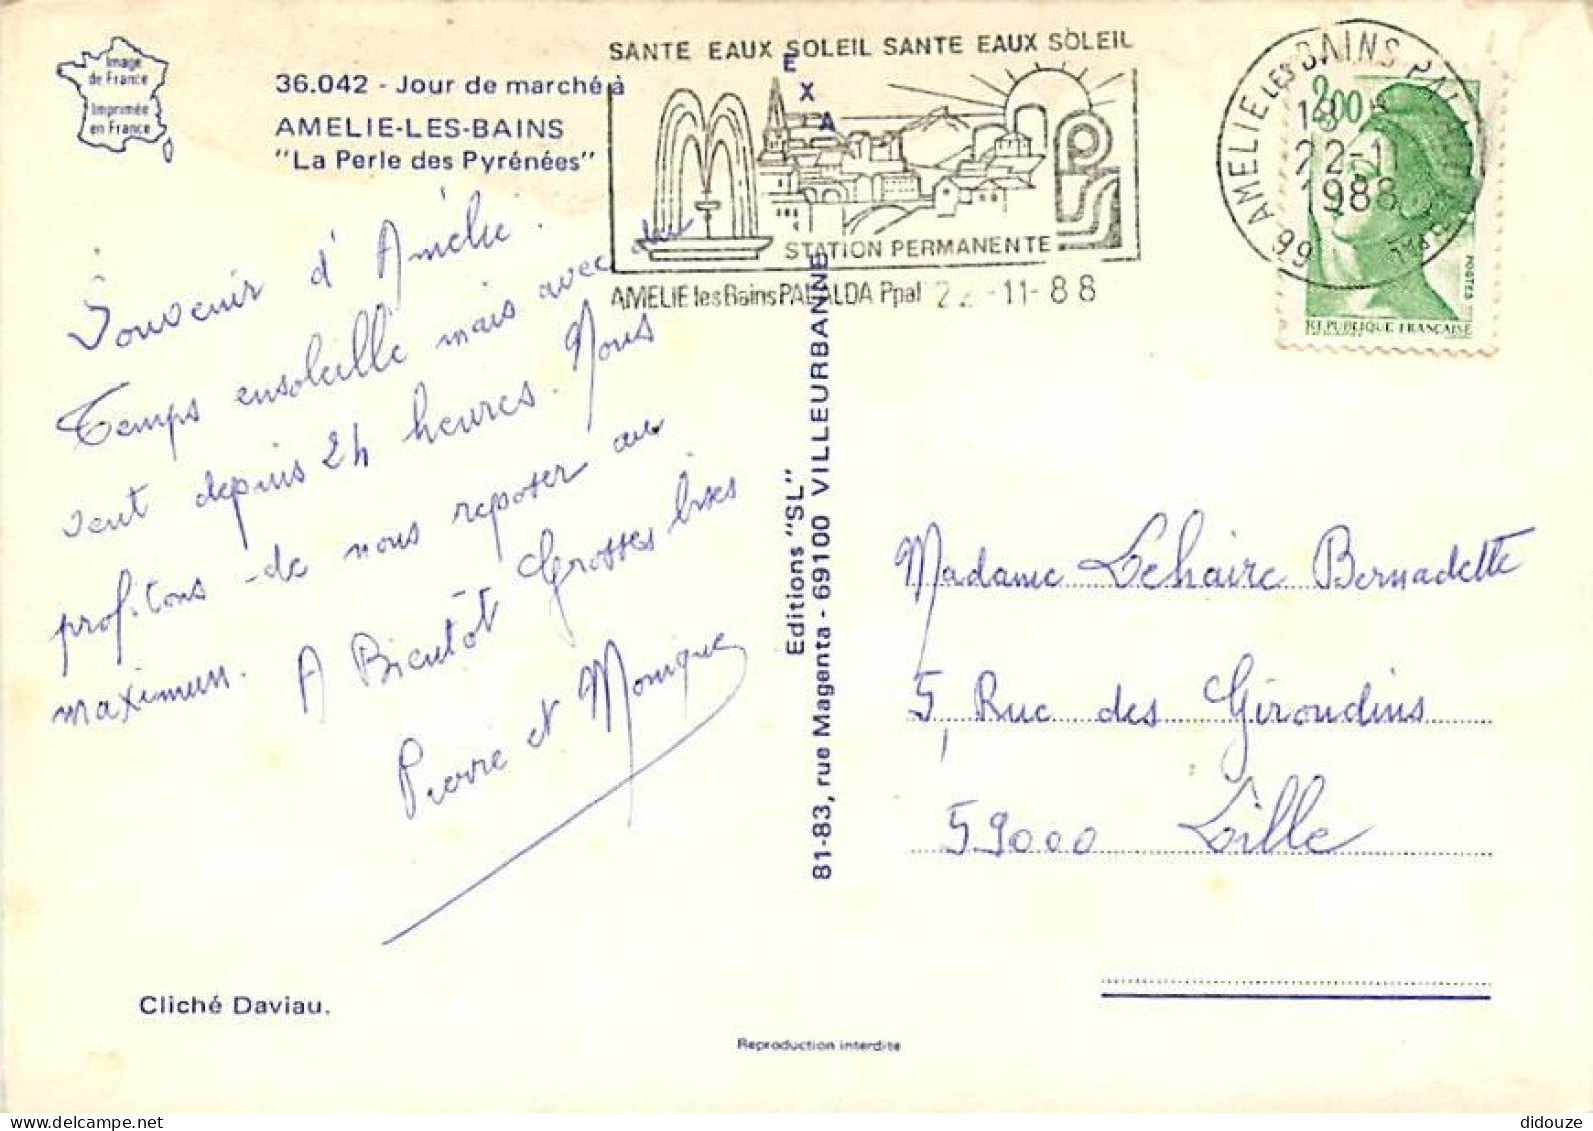 Image
de France
Imprimée
en France
36.042 - Jour de marché à
AMELIE-LES-BAINS
"La Perle des Pyrénées"
SANTE EAUX SOLEIL SANTE EAUX SOLEIL
EXA
STATION PERMANENTE
AMELIE les Bains PALALDA Ppal 22-11-88
66 AMELIE LES BAINS PALALDA Ppal
18 H
22-11
1988
2,00
POSTES
REPUBLIQUE FRANÇAISE
Souvenir d'Amélie.
Temps ensoleillé mais avec du
vent depuis 24 heures. Nous
profitons de nous reposer au
maximun. A Bientôt Grosses bises
Pierre et Monique
Editions "SL"
81-83, rue Magenta - 69100 VILLEURBANNE
Madame Lehaire Bernadette
5, Rue des Girondins
59000 Lille
Cliché Daviau.
Reproduction interdite
didouze